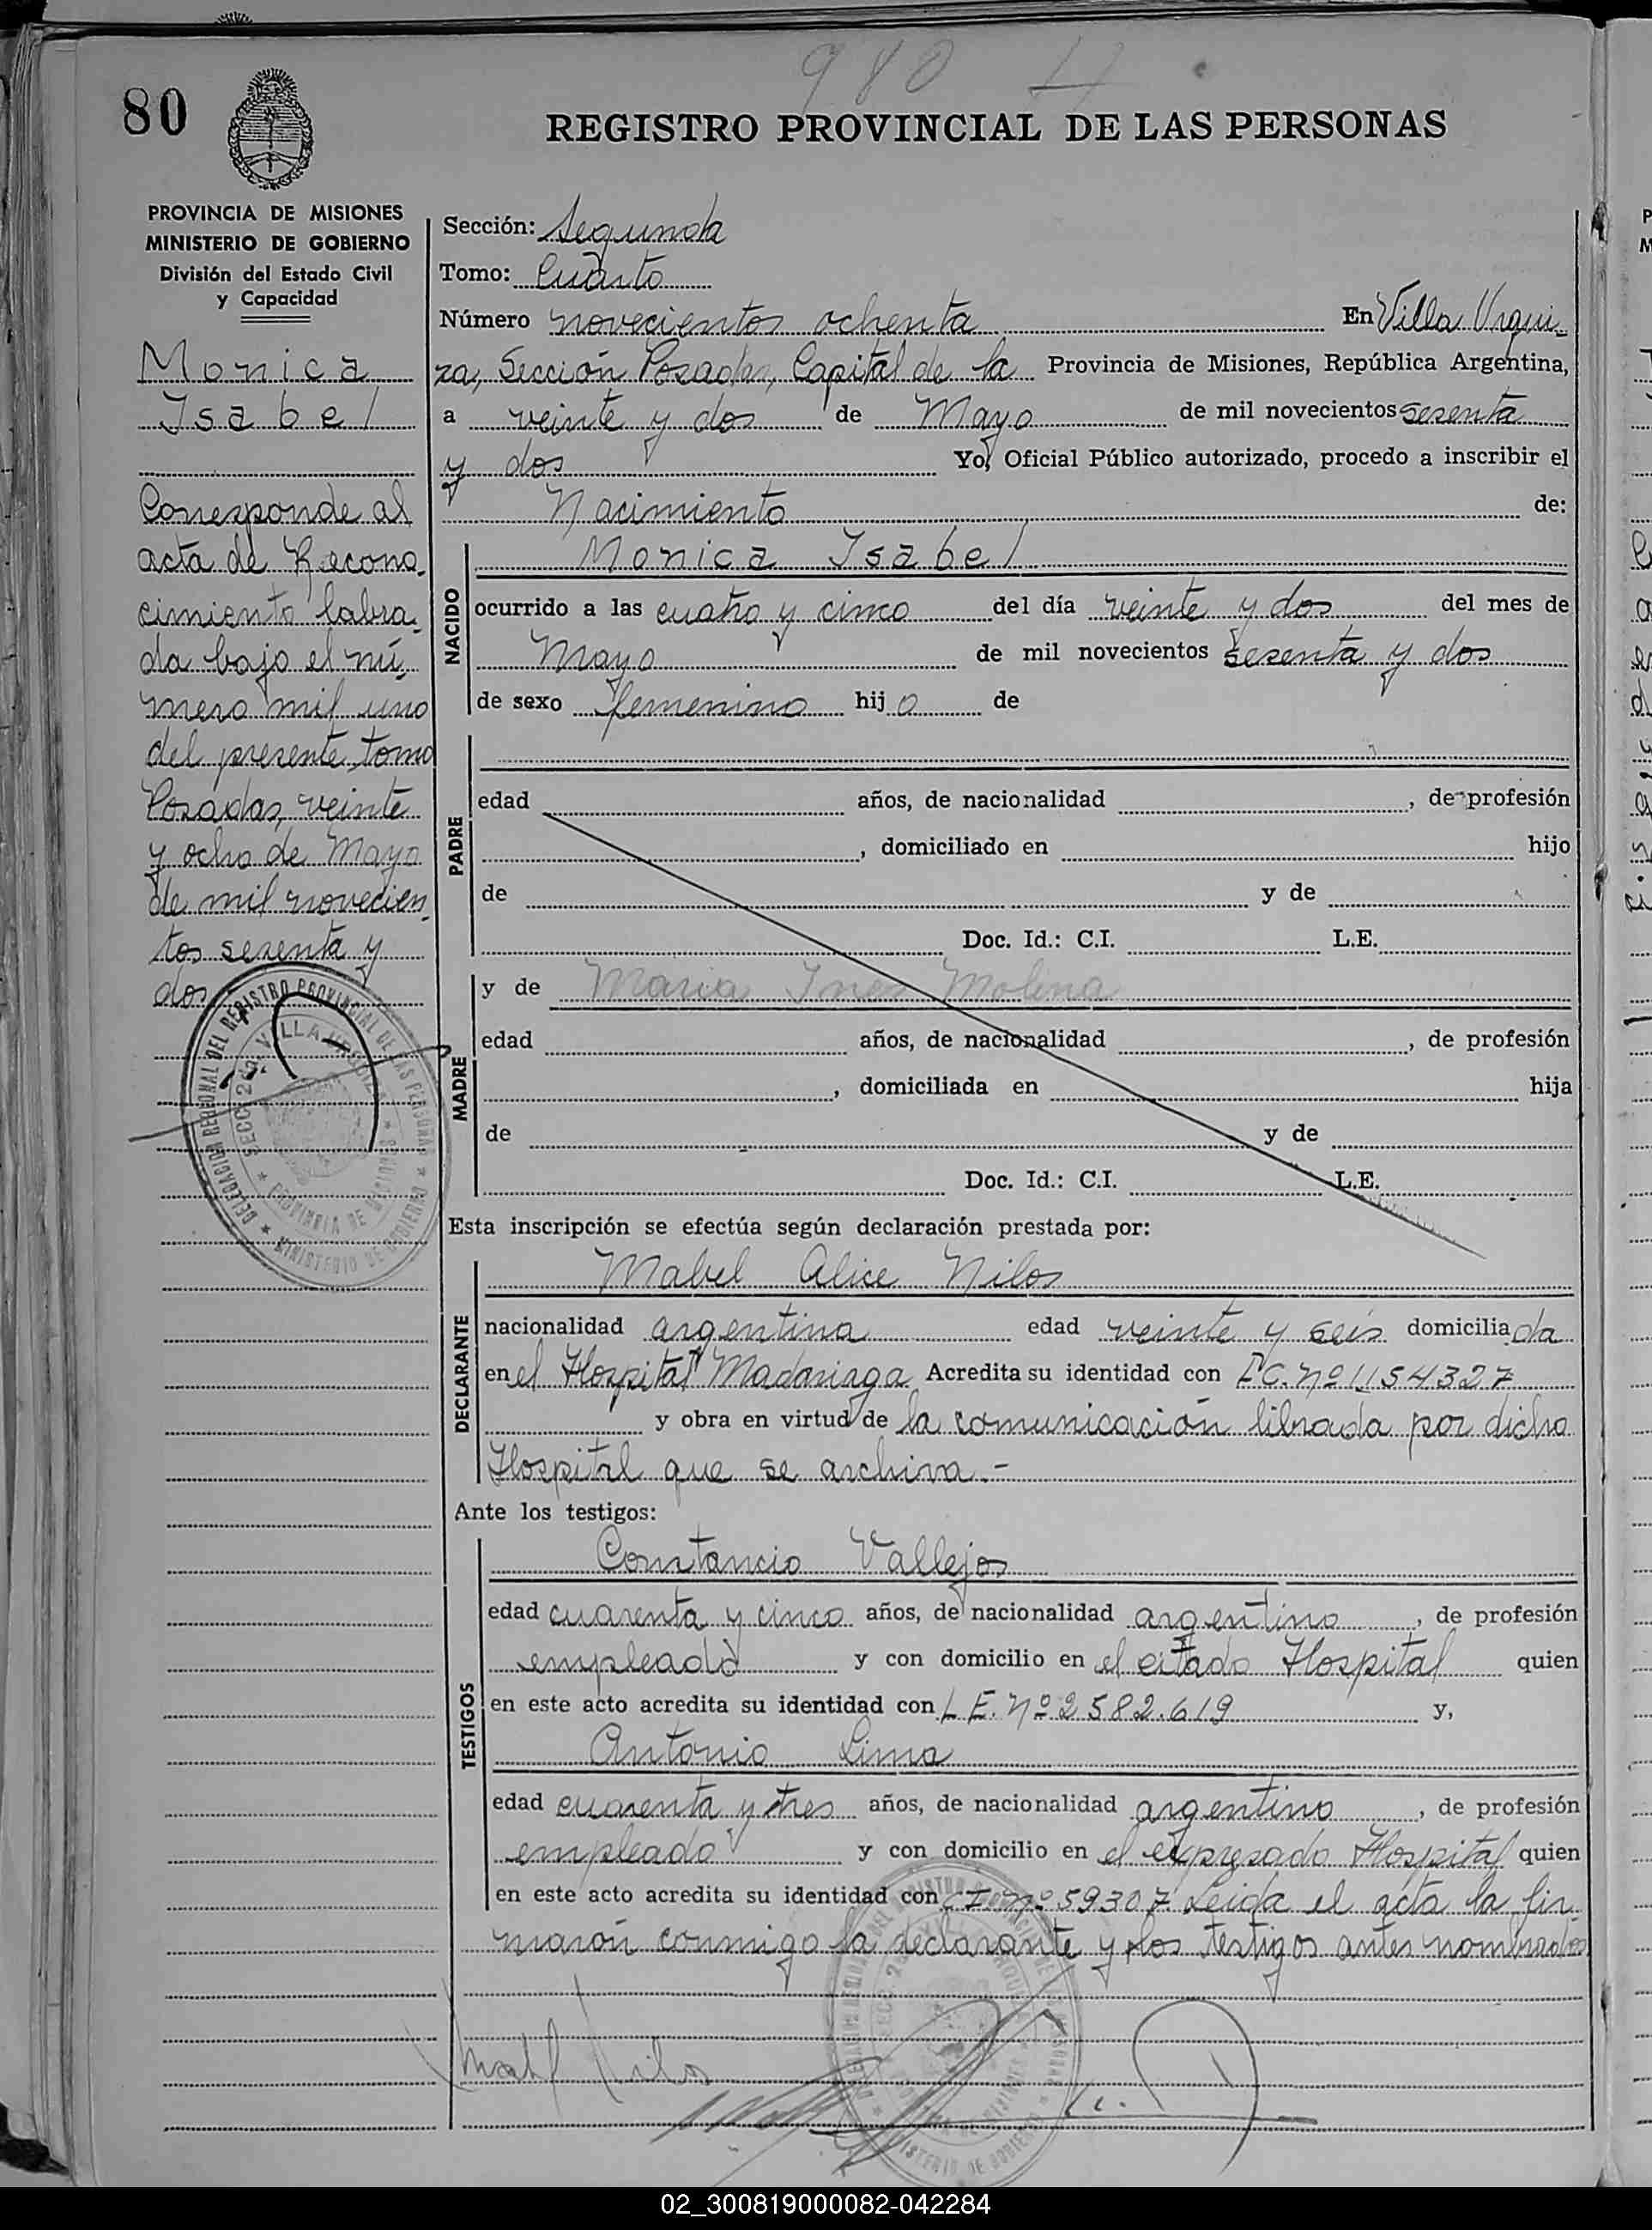 980 4
80
REGISTRO PROVINCIAL DE LAS PERSONAS
PROVINCIA DE MISIONES
MINISTERIO DE GOBIERNO
División del Estado Civil
y Capacidad
Monica
Isabel
Corresponde al
acta de Recono-
cimiento labra-
da bajo el nú-
mero mil uno
del presente tomo
Posadas, veinte
y ocho de Mayo
de mil novecien-
tos sesenta y
dos
DELEGACION REGIONAL DEL REGISTRO PROVINCIAL DE LAS PERSONAS
SECC. 2da. VILLA URQUIZA
PROVINCIA DE MISIONES
MINISTERIO DE GOBIERNO
Sección: Segunda
Tomo: Cuarto
Número novecientos ochenta En Villa Urqui-
za, Sección Posadas, Capital de la Provincia de Misiones, República Argentina,
a veinte y dos de Mayo de mil novecientos sesenta
y dos Yo, Oficial Público autorizado, procedo a inscribir el
Nacimiento de:
NACIDO
Monica Isabel
ocurrido a las cuatro y cinco del día veinte y dos del mes de
Mayo de mil novecientos sesenta y dos
de sexo femenino hij a de
PADRE
edad años, de nacionalidad , de profesión
, domiciliado en hijo
de y de
Doc. Id.: C.I. L.E.
MADRE
y de Maria Ines Molina
edad años, de nacionalidad , de profesión
, domiciliada en hija
de y de
Doc. Id.: C.I. L.E.
Esta inscripción se efectúa según declaración prestada por:
DECLARANTE
Mabel Alice Nilos
nacionalidad argentina edad veinte y seis domicilia da
en el Hospital Madariaga Acredita su identidad con L.C. Nº 1154327
y obra en virtud de la comunicación librada por dicho
Hospital que se archiva.-
Ante los testigos:
TESTIGOS
Constancio Vallejos
edad cuarenta y cinco años, de nacionalidad argentino , de profesión
empleado y con domicilio en el citado Hospital quien
en este acto acredita su identidad con L E. Nº 2582.619 y,
Antonio Lima
edad cuarenta y tres años, de nacionalidad argentino , de profesión
empleado y con domicilio en el expresado Hospital quien
en este acto acredita su identidad con C I. Nº 59307. Leida el acta la fir-
maron conmigo la declarante y los testigos antes nombrados
Mabel Nilos
02_300819000082-042284